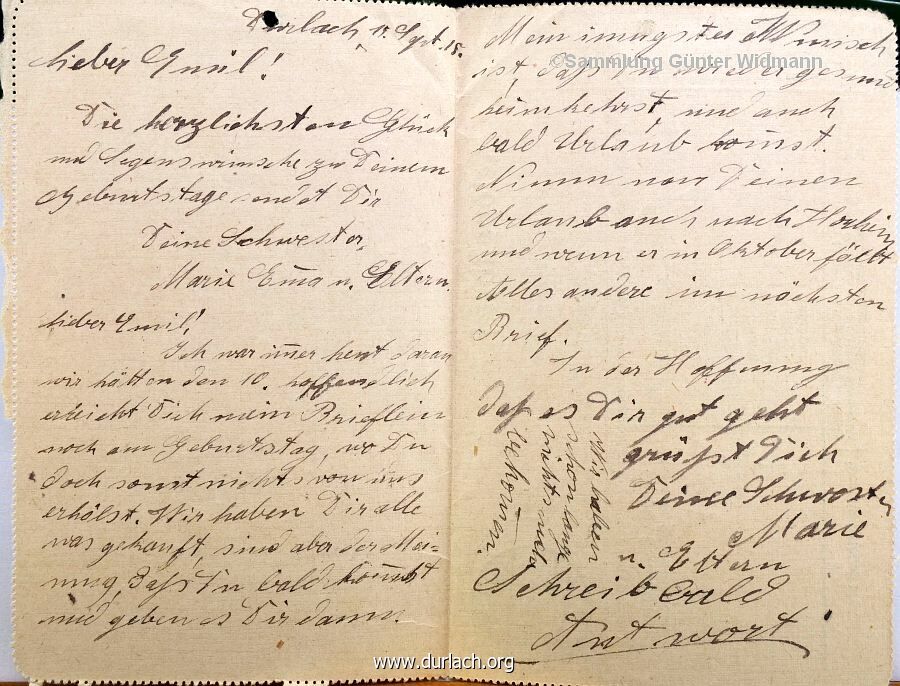 Durlach 11. Sept. 15.
Lieber Emil!
Die herzlichsten Glück
und Segenswünsche zu Deinem
Geburtstage sendet Dir
Deine Schwester,
Marie Em̄a u. Eltern.
Lieber Emil!
Ich war im̄er heut daran
wir hätten den 10. hoffendlich
erleicht Dich mein Brieflein
noch am Geburtstag, wo Du
doch sonst nichts von uns
erhälst. Wir haben Dir alle
was gekauft, sind aber der Mei=
nung, daß Du bald kom̄st
und geben es Dir dann.
Mein innigster Wunsch
ist, daß Du wieder gesund
heimkehrst, und auch
bald Urlaub kom̄st.
Nimm nur Deinen
Urlaub auch nach
und wenn er in Oktober fällt
Alles andere im nächsten
Brief.
In der Hoffnung
daß es Dir gut geht
grüßt Dich
Deine Schwester
Marie
u. Eltern
Schreib bald
Antwort
Wir haben
schon lange
nichts mehr
bekom̄en.
©Sammlung Günter Widmann
www.durlach.org